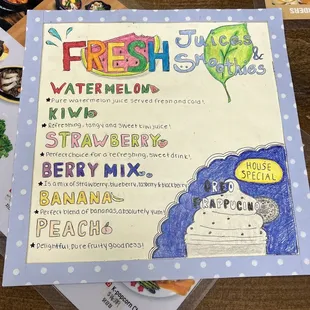 FRESH Juices &
Smoothies
WATERMELON
★Pure watermelon juice served fresh and cold!
KIWI
★Refreshing, tangy and sweet kiwi juice!
STRAWBERRY
★Perfect choice for a refreshing, sweet drink!
BERRY MIX
★Is a mix of strawberry, blueberry, raspberry & blackberry
BANANA
★Perfect blend of bananas, absolutely yum!
PEACH
★Delightful. Pure fruity goodness!
HOUSE
SPECIAL
OREO
FRAPPUCINO
K-popcorn